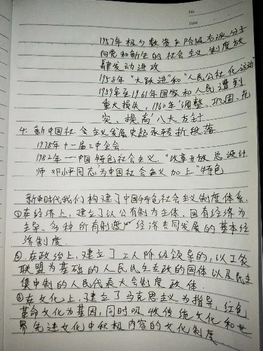 1957年极少数资产阶级右派分子
向党和新生的社会主义制度放
肆发动进攻
1958年"大跃进"和"人民公社化运动
1959年至1961年国家和人民遭到
重大损失,1960年"调整、巩固、充
实、提高"八大方针
4. 新中国社会主义发展史起承转折段落
1978年十一届三中全会
1982年——中国特色社会主义。"改革开放总设计
师邓小平同志为中国社会主义加上"特色
新时代我们构建了中国特色社会主义制度体系。
①在经济上,建立了以公有制为主体,国有经济为
主导,多种所有制 经济共同发展的基本经
济制度
②.在政治上,建立了工人阶级领导的,以工农
联盟为基础的人民民主专政的国体以及民主
集中制的人民代表大会制度政体.
③在文化上,建立了马克思主义为指导,红色
革命文化为基因,同时吸收传统文化和世
界先进文化中积极内容的文化制度